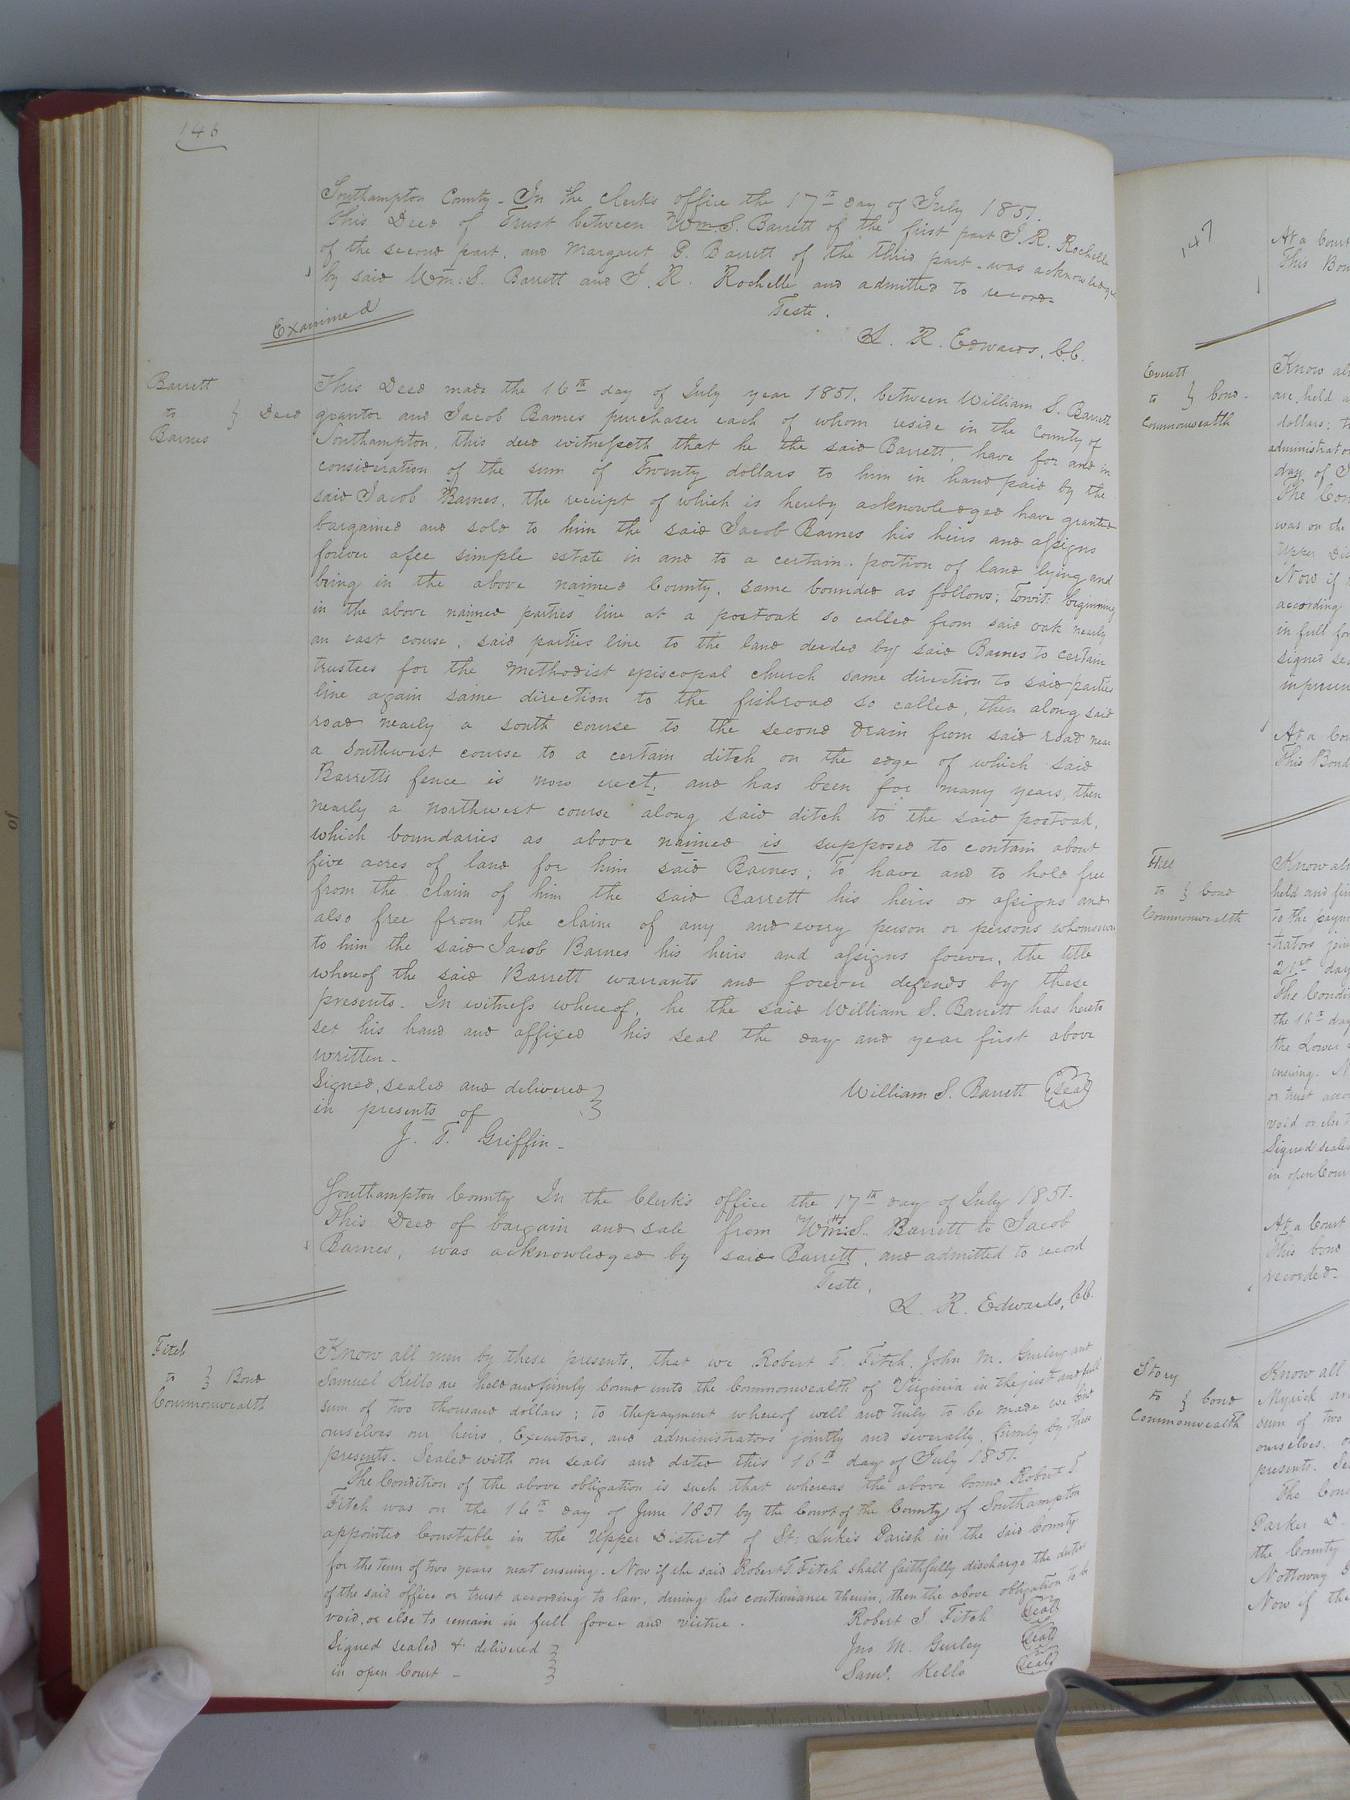 146
Southampton County. In the clerks office the 17th day of July 1851.
This Deed of Trust between Wm. S. Barrett of the first part J. R. Rochelle
of the second part, and Margaret P. Barrett of the third part was acknowledged
by said Wm. S. Barrett and J. R. Rochelle and admitted to record
Teste.
L. R. Edwards, C.C.
Examined
Barrett
to } Deed
Barnes
This Deed made the 16th day of July year 1851, between William S. Barrett
grantor and Jacob Barnes purchaser each of whom reside in the County of
Southampton, this deed witnesseth that he the said Barrett, have for and in
consideration of the sum of Twenty dollars to him in hand paid by the
said Jacob Barnes, the receipt of which is hereby acknowledged have granted
bargained and sold to him the said Jacob Barnes his heirs and assigns
forever afee simple estate in and to a certain portion of land lying and
being in the above named County, same bounded as follows; Towit: beginning
in the above named parties line at a postoak so called from said oak nearly
an east course, said parties line to the land deeded by said Barnes to certain
trustees for the methodist episcopal church same direction to said parties
line again same direction to the fishroad so called, then along said
road nearly a south course to the second drain from said road near
a Southwest course to a certain ditch on the edge of which said
Barretts fence is now erect, and has been for many years, then
nearly a northwest course along said ditch to the said postoak,
which boundaries as above named is supposed to contain about
five acres of land for him said Barnes; To have and to hold free
from the claim of him the said Barrett his heirs or assigns and
also free from the claim of any and every person or persons whomsoever
to him the said Jacob Barnes his heirs and assigns forever, the title
whereof the said Barrett warrants and forever defends by these
presents. In witness whereof, he the said William S. Barrett has hereto
set his hand and affixed his seal the day and year first above
written.
Signed, sealed and delivered }
in presents of
William S. Barrett (seal)
J. T. Griffin
Southampton County In the Clerk's office the 17th day of July 1851.
This Deed of bargain and sale from Wm. S. Barrett to Jacob
Barnes, was acknowledged by said Barrett, and admitted to record
Teste,
L. R. Edwards, C.C.
Fitch
to } Bond
Commonwealth
Know all men by these presents, that we Robert T. Fitch, John M. Gurley and
Samuel Kello are held and firmly bound unto the Commonwealth of Virginia in the just and full
sum of two thousand dollars; to the payment whereof well and truly to be made we bind
ourselves our heirs Executors, and administrators jointly and severally, firmly by these
presents. Sealed with our seals and dated this 16th day of July 1851.
The Condition of the above obligation is such that whereas the above bound Robert T
Fitch was on the 16th day of June 1851 by the Court of the County of Southampton
appointed Constable in the Upper District of St. Lukes Parish in the said County
for the term of two years next ensuing. Now if the said Robert T. Fitch shall faithfully discharge the duties
of the said office or trust according to law, during his continuance therein, then the above obligation to be
void, or else to remain in full force and virtue.
Robert T. Fitch (seal)
Signed sealed & delivered }
Jno M. Gurley (seal)
in open Court -
Saml. Kello (seal)
147
At a Court
This Bon
Everett
to } Bond.
Commonwealth
Know all
are held a
dollars; t
administrator
day of J
The Con
was on the
Upper Dis
Now if
according
in full for
signed sea
in presen
At a Cou
This Bond
Hill
to } bond
Commonwealth
Know all
held and fir
to the paym
trators join
21st day
The Condi
the 16th day
the Lower
ensuing. N
or trust acco
void or else t
Signed seale
in open Cour
At a Court
This bond
recorded.
Story
to } bond
Commonwealth
Know all
Myrick an
sum of two
ourselves,
presents. Se
The Con
Parker D.
the County
Nottoway
Now if the